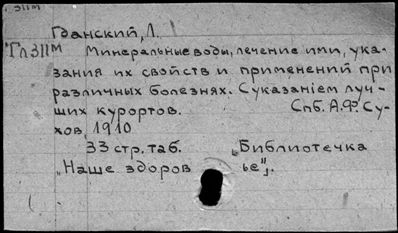 311м
Гданский, Л.
Гл311м Минеральные воды, лечение ими, ука-
зания их свойств и применений при
различных болезнях. С указанiем луч-
ших курортов. Спб. А.Ф. Су-
хов, 1910
33 стр. таб. „Библиотечка
„Наше здоровье",.